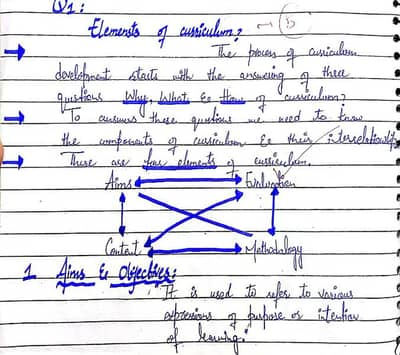 Q1:
Elements of curriculum?
The process of curriculum
development starts with the answering of three
questions Why, What & How of curriculum?
To answer these questions we need to know
the components of curriculum & their interrelationship
These are four elements of curriculum.
Aims Evaluation
Content Methodology
1 Aims & Objectives:
It is used to refer to various
expressions of purpose or intention
of learning.